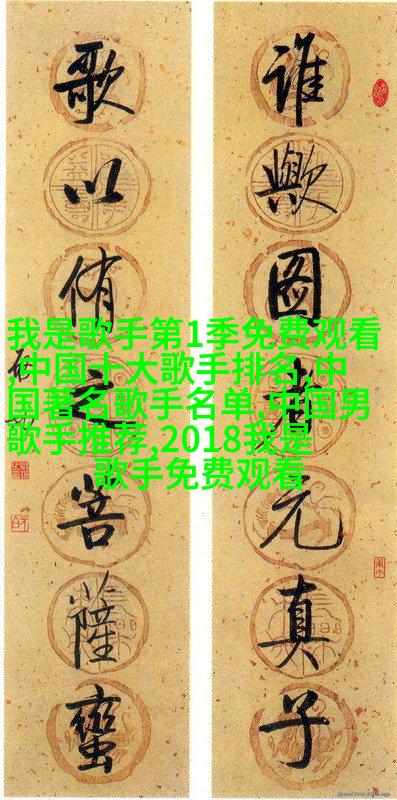 谁歟图者元真子
歌以侑之菩薩蠻
我是歌手第1季免费观看
,中国十大歌手排名,中
国著名歌手名单,中国男
歌手推荐,2018我是
歌手免费观看